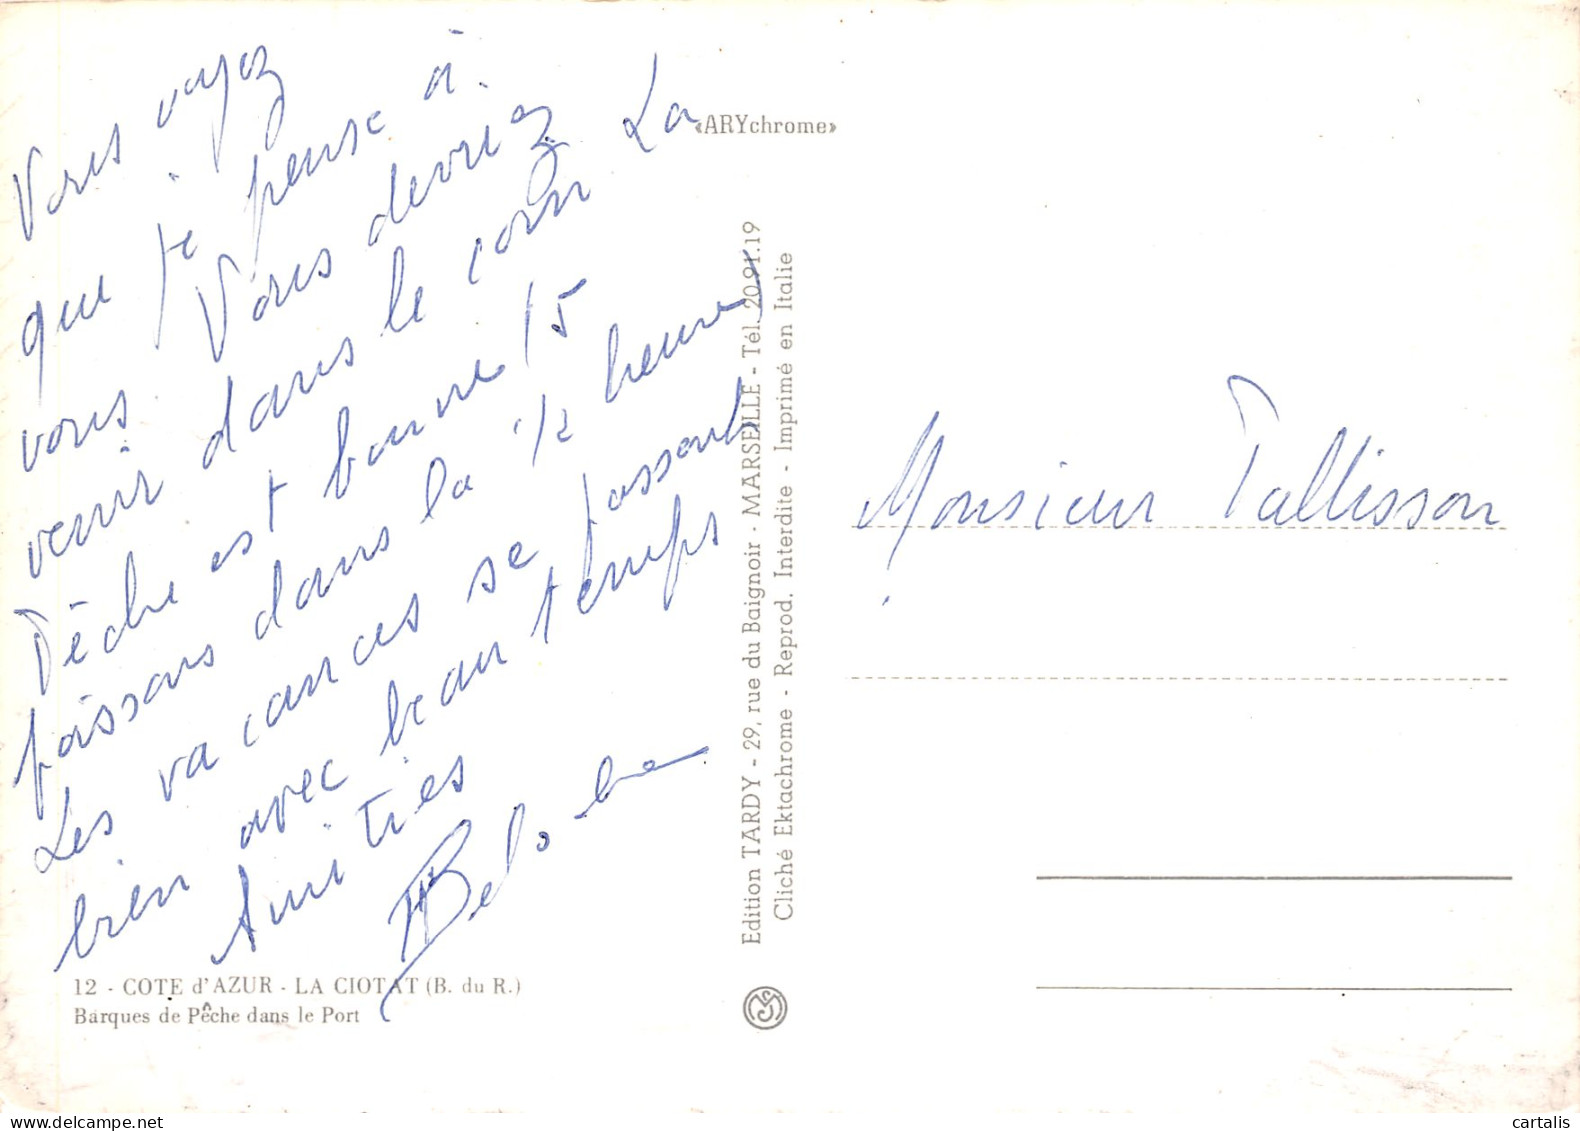 Vous voyez
que je pense à
vous. Vous devriez
venir dans le coin La
Pêche est bonne 15
poissons dans la 1/2 heure
Les vacances se passent
bien avec beau temps
Amitiés
«ARYchrome»
Edition TARDY - 29, rue du Baignoir - MARSEILLE - Tél. 20.91.19
Cliché Ektachrome - Reprod. Interdite - Imprimé en Italie
Monsieur Tallisson
12 - COTE d'AZUR - LA CIOTAT (B. du R.)
Barques de Pêche dans le Port
cartalis